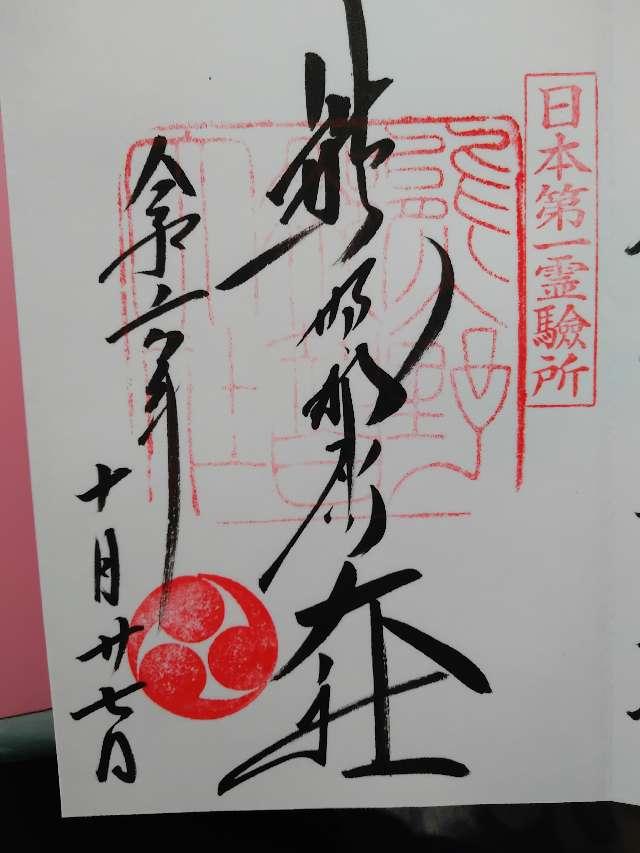 日本第一霊驗所
熊野那智大社
令和六年
十月廿七日